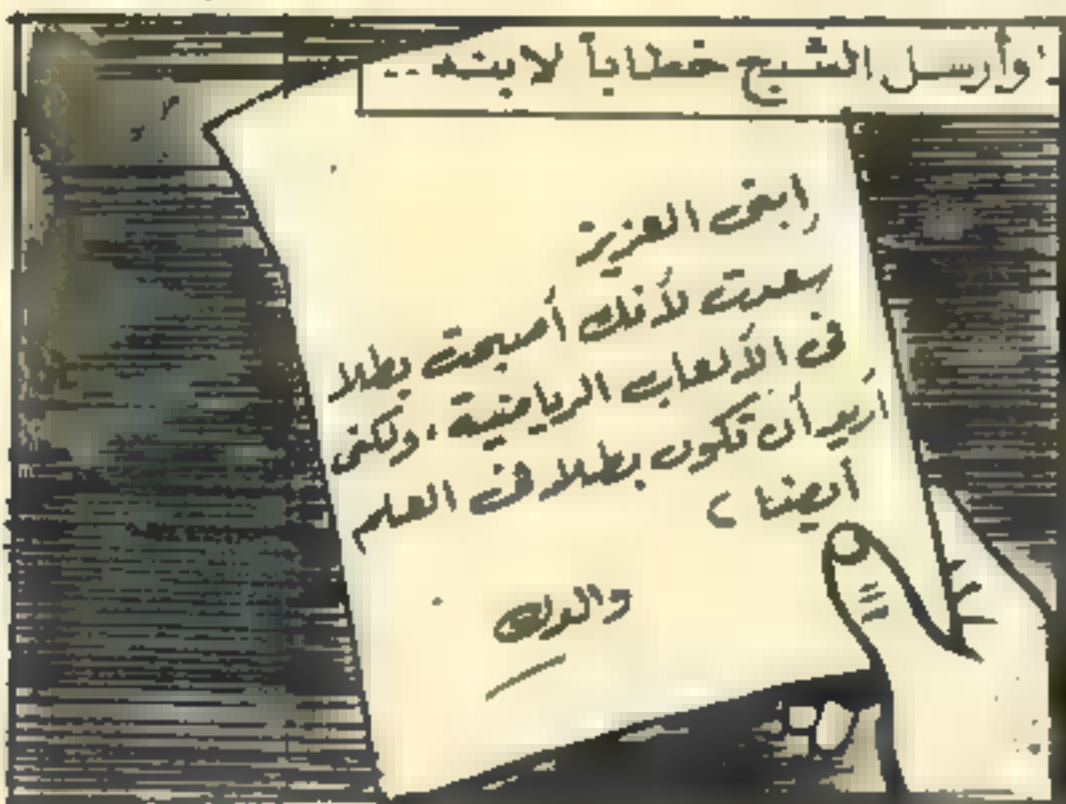 وأرسل الشبح خطاباً لابنه ..
ابنى العزيز
سعدت لأنك أصبحت بطلا
فى الألعاب الرياضية ، ولكنى
أريد أن تكون بطلا فى العلم
أيضا
والدك